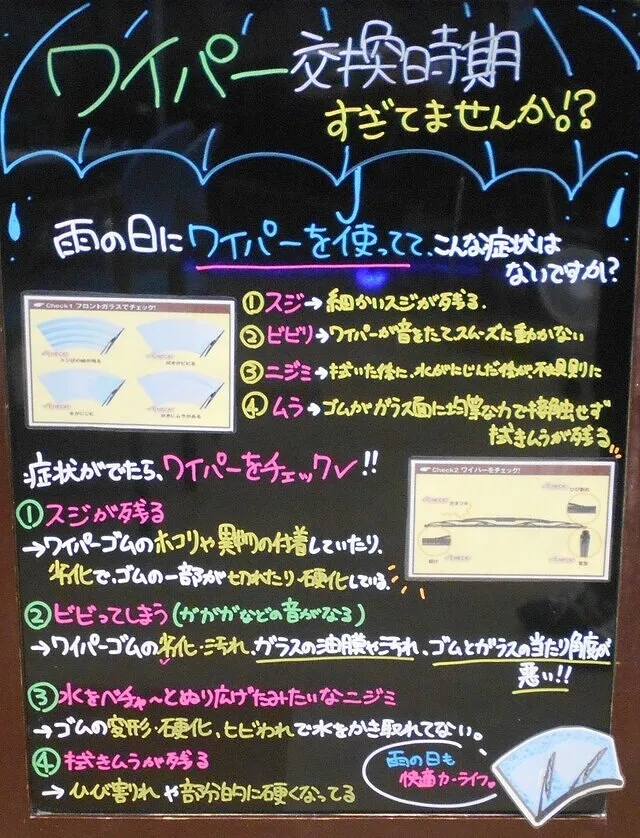 ワイパー交換時期
すぎてませんか!?
雨の日にワイパーを使ってて、こんな症状は
ないですか?
Check1 フロントガラスでチェック!
スジ状の線が残る
拭きがビビる
水がにじむ
拭きにムラがある
①スジ→細かいスジが残る.
②ビビリ→ワイパーが音をたて、スムーズに動かない
③ニジミ→拭いた後に、水がにじんだ後が、不規則に
④ムラ→ゴムがガラス面に均等な力で接触せず
拭きムラが残る。
症状がでたら、ワイパーをチェック✓!!
Check2 ワイパーをチェック!
ひび割れ
①スジが残る
→ワイパーゴムのホコリや異物の付着していたり、
劣化で、ゴムの一部が切れたり・硬化している.
②ビビってしまう(ガガガなどの音がなる)
→ワイパーゴムの劣化・汚れ、ガラスの油膜や汚れ、ゴムとガラスの当たり角度が
悪い!!
③水をベチャ〜とぬり広げたみたいなニジミ
→ゴムの変形・硬化、ヒビわれで水をかき取れてない。
④拭きムラが残る
→ひび割れや部分的に硬くなってる
雨の日も
快適カーライフ。